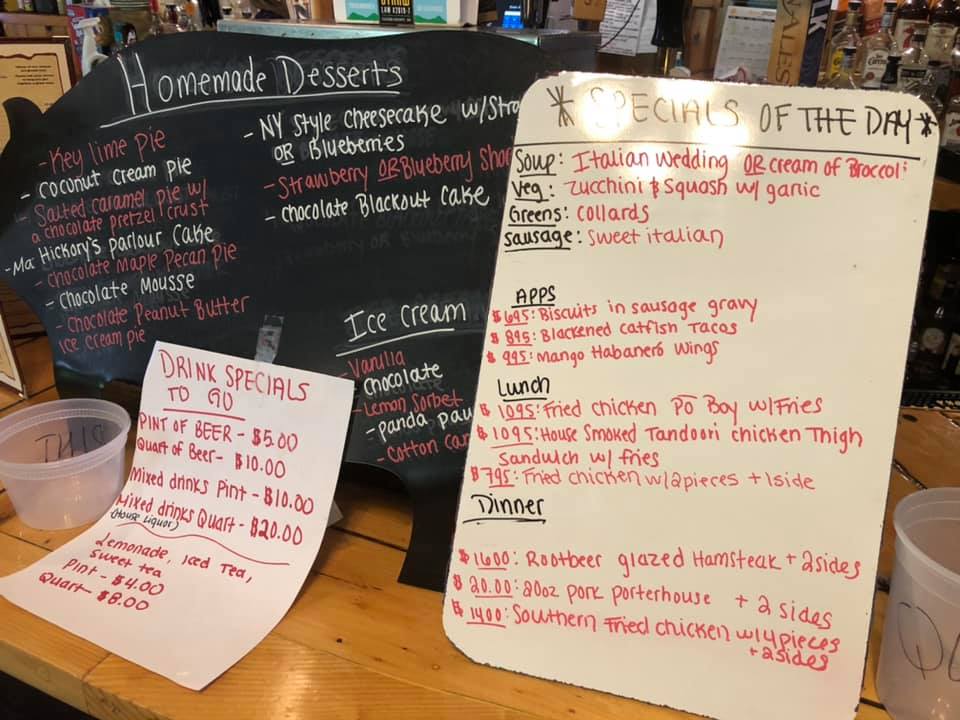 Homemade Desserts
- Key lime Pie
- Coconut cream pie
- Salted caramel pie w/
a chocolate pretzel crust
- Ma Hickory's parlour Cake
- Chocolate Maple Pecan Pie
- Chocolate Mousse
- Chocolate Peanut Butter
Ice cream pie
- NY Style Cheesecake w/Stra
OR Blueberries
- Strawberry OR Blueberry Shor
- Chocolate Blackout Cake
Ice Cream
- Vanilla
Chocolate
- Lemon Sorbet
- panda pau
- Cotton Can
DRINK SPECIALS
TO GO
PINT OF BEER - $5.00
Quart of Beer - $10.00
Mixed drinks Pint - $10.00
Mixed drinks Quart - $20.00
(House Liquor)
Lemonade, Iced Tea,
Sweet tea
Pint - $4.00
Quart - $8.00
* SPECIALS OF THE DAY *
Soup: Italian Wedding OR cream of Broccoli
Veg: Zucchini & Squash w/ garlic
Greens: Collards
Sausage: Sweet italian
APPS
$ 695: Biscuits in sausage gravy
$ 895: Blackened catfish Tacos
$ 995: Mango Habanero Wings
Lunch
$ 1095: Fried chicken Po Boy w/Fries
$ 1095: House Smoked Tandoori chicken Thigh
Sandwich w/ fries
$ 795: Fried chicken w/2pieces +1side
Dinner
$ 1600: Rootbeer glazed Hamsteak + 2sides
$ 20.00: 20oz pork porterhouse + 2 sides
$ 1400: Southern Fried chicken w/4pieces
+2sides
THIS